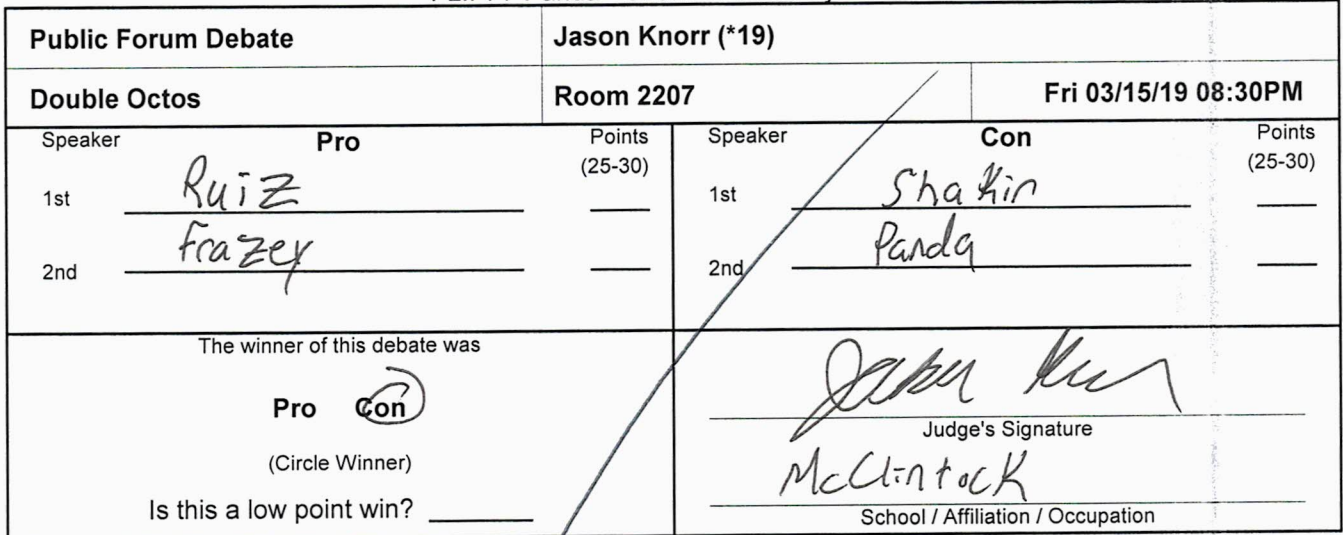 Public Forum Debate Jason Knorr (*19)
Double Octos Room 2207 Fri 03/15/19 08:30PM
Speaker Pro Points (25-30)
1st Ruiz
2nd Frazey
Speaker Con Points (25-30)
1st Shakin
2nd Panda
The winner of this debate was
Pro Con
(Circle Winner)
Is this a low point win?
Jason Knorr
Judge's Signature
McClintock
School / Affiliation / Occupation